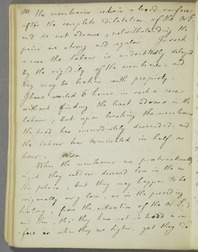 the membranes retain a broad surface
after the complete dilatation of the
and do not advance, notwithstanding the
pains are strong and regular. In such
a case the labour is undoubtedly delayed
by the rigidity of the membranes, and
they may be broken with propriety.
I have waited 6 hours in such a case
without finding the least advance in the
labour, but upon breaking the membranes
the head has immediately descended, and
the labour has terminated in half an
hour.
When the membranes are preternaturally
rigid they seldom descend low in the
the pelvis, but they may happen to be
originally very low, as in the preceding
history, from the situation of the
in
as when they are higher, yet they